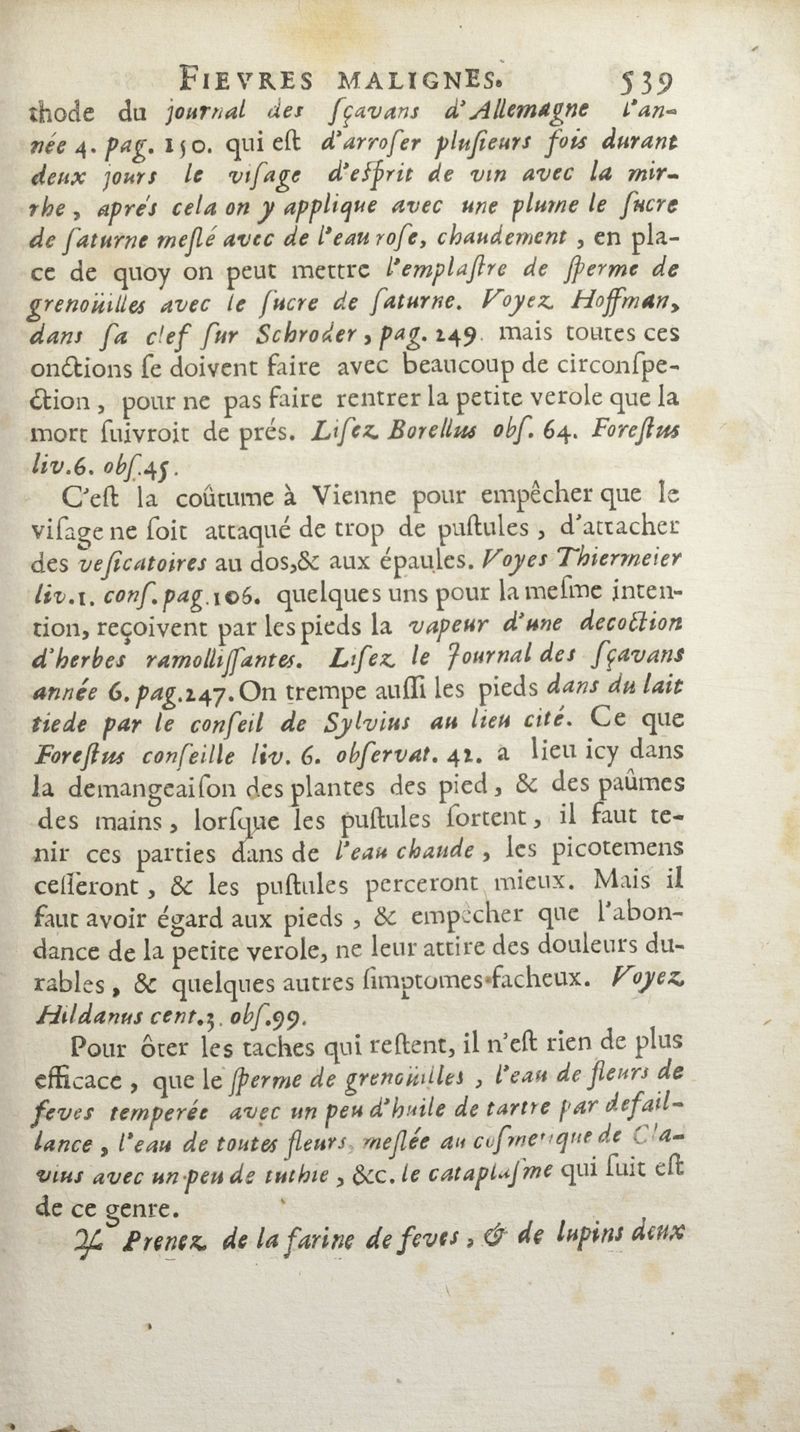 FIEVRES MALIGNES. 539
thode du journal des ſçavans d'Allemagne l'an-
née 4. pag. 150. qui eſt d'arroſer pluſieurs fois durant
deux jours le viſage d'eſprit de vin avec la mir-
rhe, aprés cela on y applique avec une plume le ſucre
de ſaturne meſlé avec de l'eau roſe, chaudement, en pla-
ce de quoy on peut mettre l'emplaſtre de ſperme de
grenoüilles avec le ſucre de ſaturne. Voyez Hoffman,
dans ſa clef ſur Schroder, pag. 249. mais toutes ces
onctions ſe doivent faire avec beaucoup de circonſpe-
ction, pour ne pas faire rentrer la petite verole que la
mort ſuivroit de prés. Liſez Borellus obſ. 64. Foreſtus
liv.6. obſ.45.
C'eſt la coûtume à Vienne pour empêcher que le
viſage ne ſoit attaqué de trop de puſtules, d'attacher
des veſicatoires au dos,& aux épaules. Voyes Thiermeier
liv.1. conſ. pag.106. quelques uns pour la meſme inten-
tion, reçoivent par les pieds la vapeur d'une decoction
d'herbes ramolliſſantes. Liſez le Journal des ſçavans
année 6. pag.247. On trempe auſſi les pieds dans du lait
tiede par le conſeil de Sylvius au lieu cité. Ce que
Foreſtus conſeille liv. 6. obſervat. 42. a lieu icy dans
la demangeaiſon des plantes des pied, & des paûmes
des mains, lorſque les puſtules ſortent, il faut te-
nir ces parties dans de l'eau chaude, les picotemens
ceſſeront, & les puſtules perceront mieux. Mais il
faut avoir égard aux pieds, & empêcher que l'abon-
dance de la petite verole, ne leur attire des douleurs du-
rables, & quelques autres ſimptomes facheux. Voyez
Hildanus cent.3. obſ.99.
Pour ôter les taches qui reſtent, il n'eſt rien de plus
efficace, que le ſperme de grenoüilles, l'eau de fleurs de
feves temperée avec un peu d'huile de tartre par defail-
lance, l'eau de toutes fleurs, meſlée au coſmetique de Cla-
vius avec un peu de tuthie, &c. le cataplaſme qui ſuit eſt
de ce genre.
♃ Prenez de la farine de feves, & de lupins deux